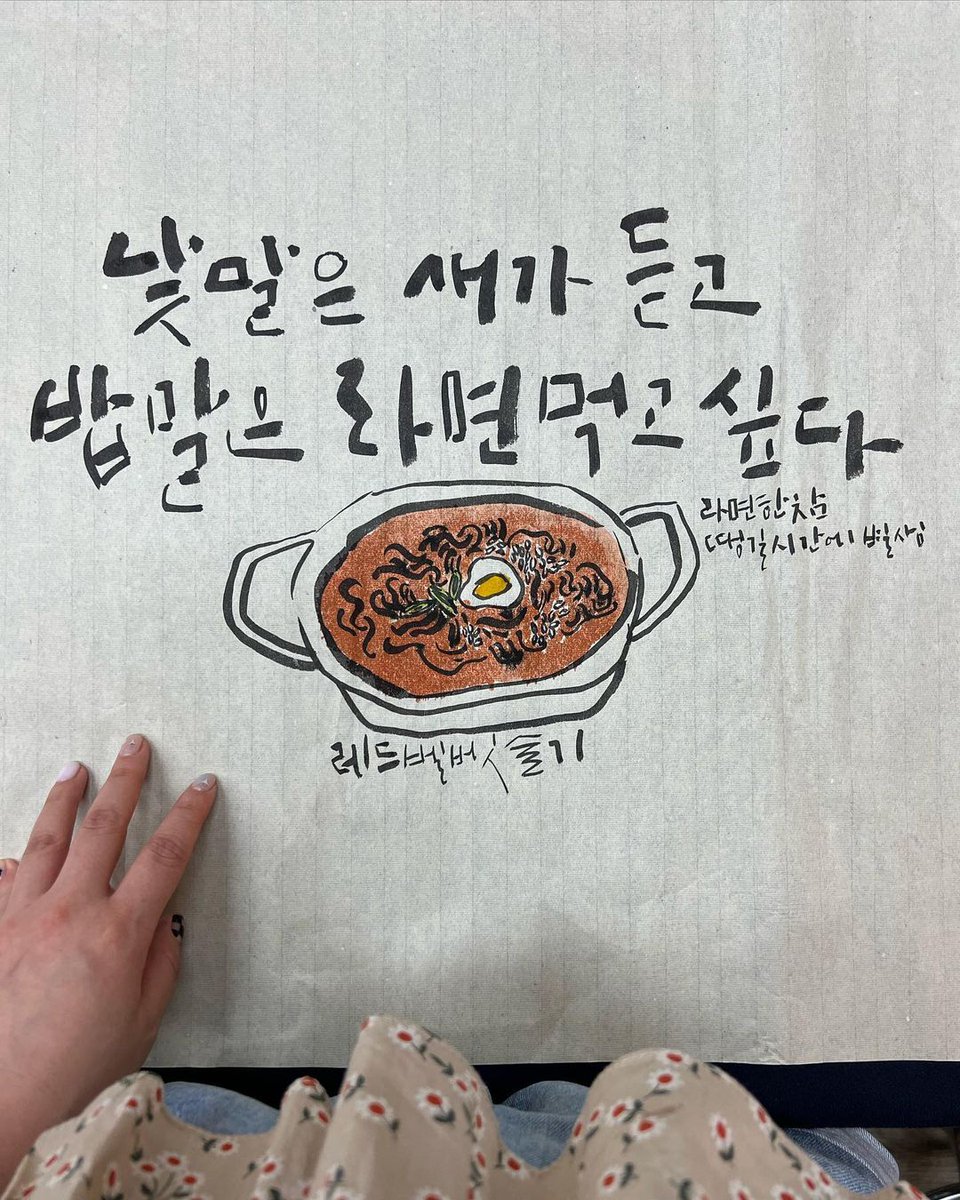 낮말은 새가 듣고
밥말은 라면 먹고 싶다
라면한참
땡길시간에 별삼
레드벨벳 슬기